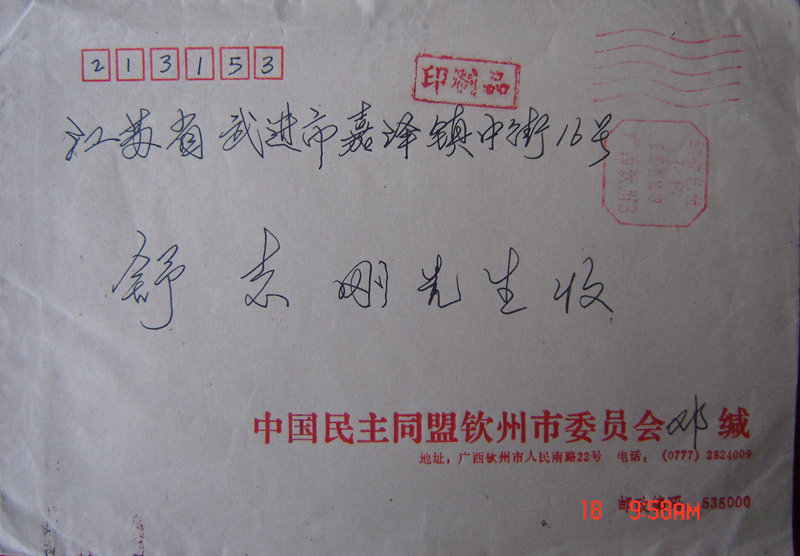 213153
印刷品
江苏省武进市嘉泽镇中街16号
舒志刚先生收
中国民主同盟钦州市委员会邓缄
地址：广西钦州市人民南路22号 电话：(0777) 2824009
535000
18 9:58AM